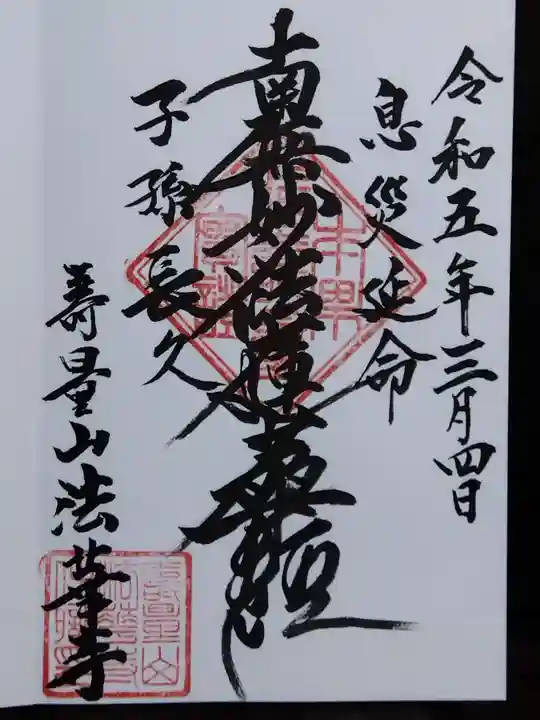 令和五年三月四日
息災延命
南無妙法蓮華経
子孫長久
壽量山法華寺